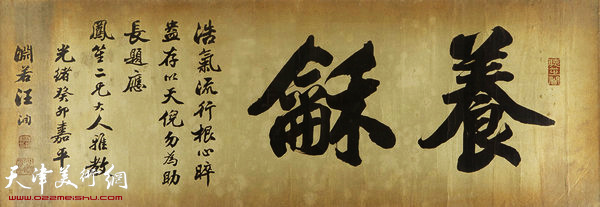 養龢
浩氣流行根心晬
盎存以天倪勿為助
長題應
鳳笙二兄大人雅教
光緒癸卯嘉平
淵若汪洵
天津美術網
www.022meishu.com